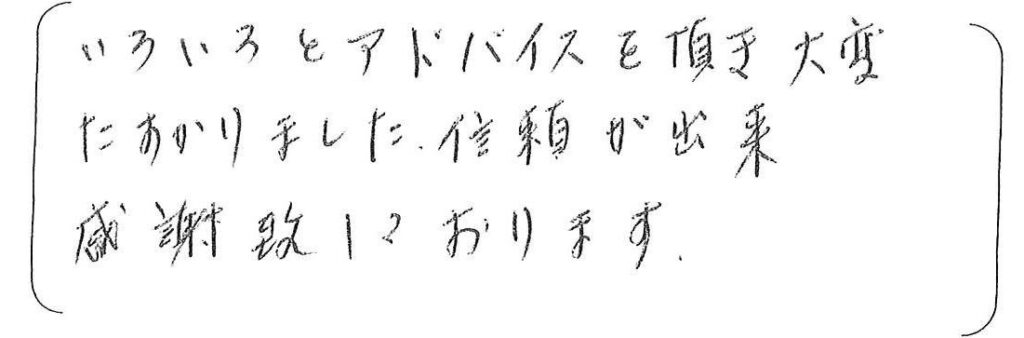 いろいろとアドバイスを頂き大変
たすかりました.信頼が出来
感謝致しております.